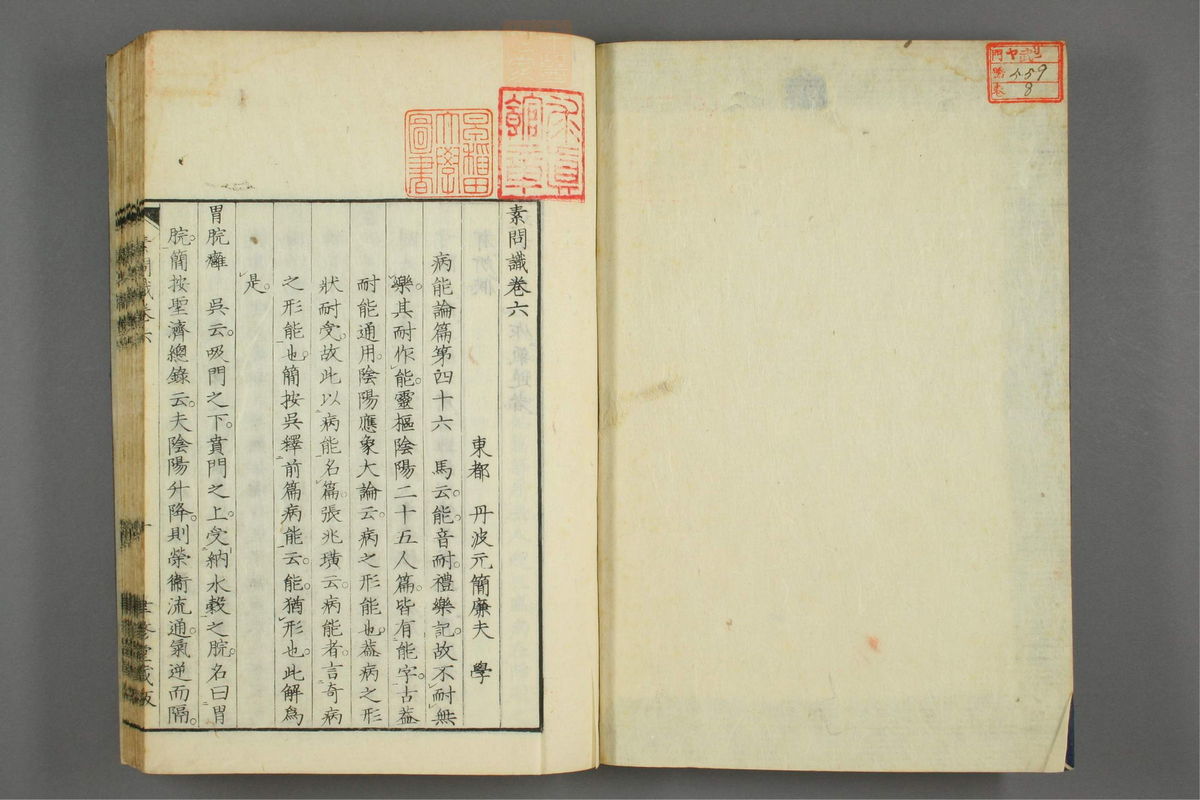 門 ヤ
號 459
卷 8
館章
早稻田
大學
圖書
素問識卷六
東都 丹波元簡廉夫 學
病能論篇第四十六 馬云。能。音耐。禮樂記。故不耐無
樂。其耐作能。靈樞陰陽二十五人篇。皆有能字。古蓋
耐能通用。陰陽應象大論云。病之形能也。蓋病之形
狀耐受。故此以病能名篇。張兆璜云。病能者。言奇病
之形能也。簡按吳釋前篇病能云。能。猶形也。此解爲
是。
胃脘癰 吳云。吸門之下。賁門之上。受納水穀之脘。名曰胃
脘。簡按聖濟總錄云。夫陰陽升降。則榮衞流通。氣逆而隔。
素問識卷六